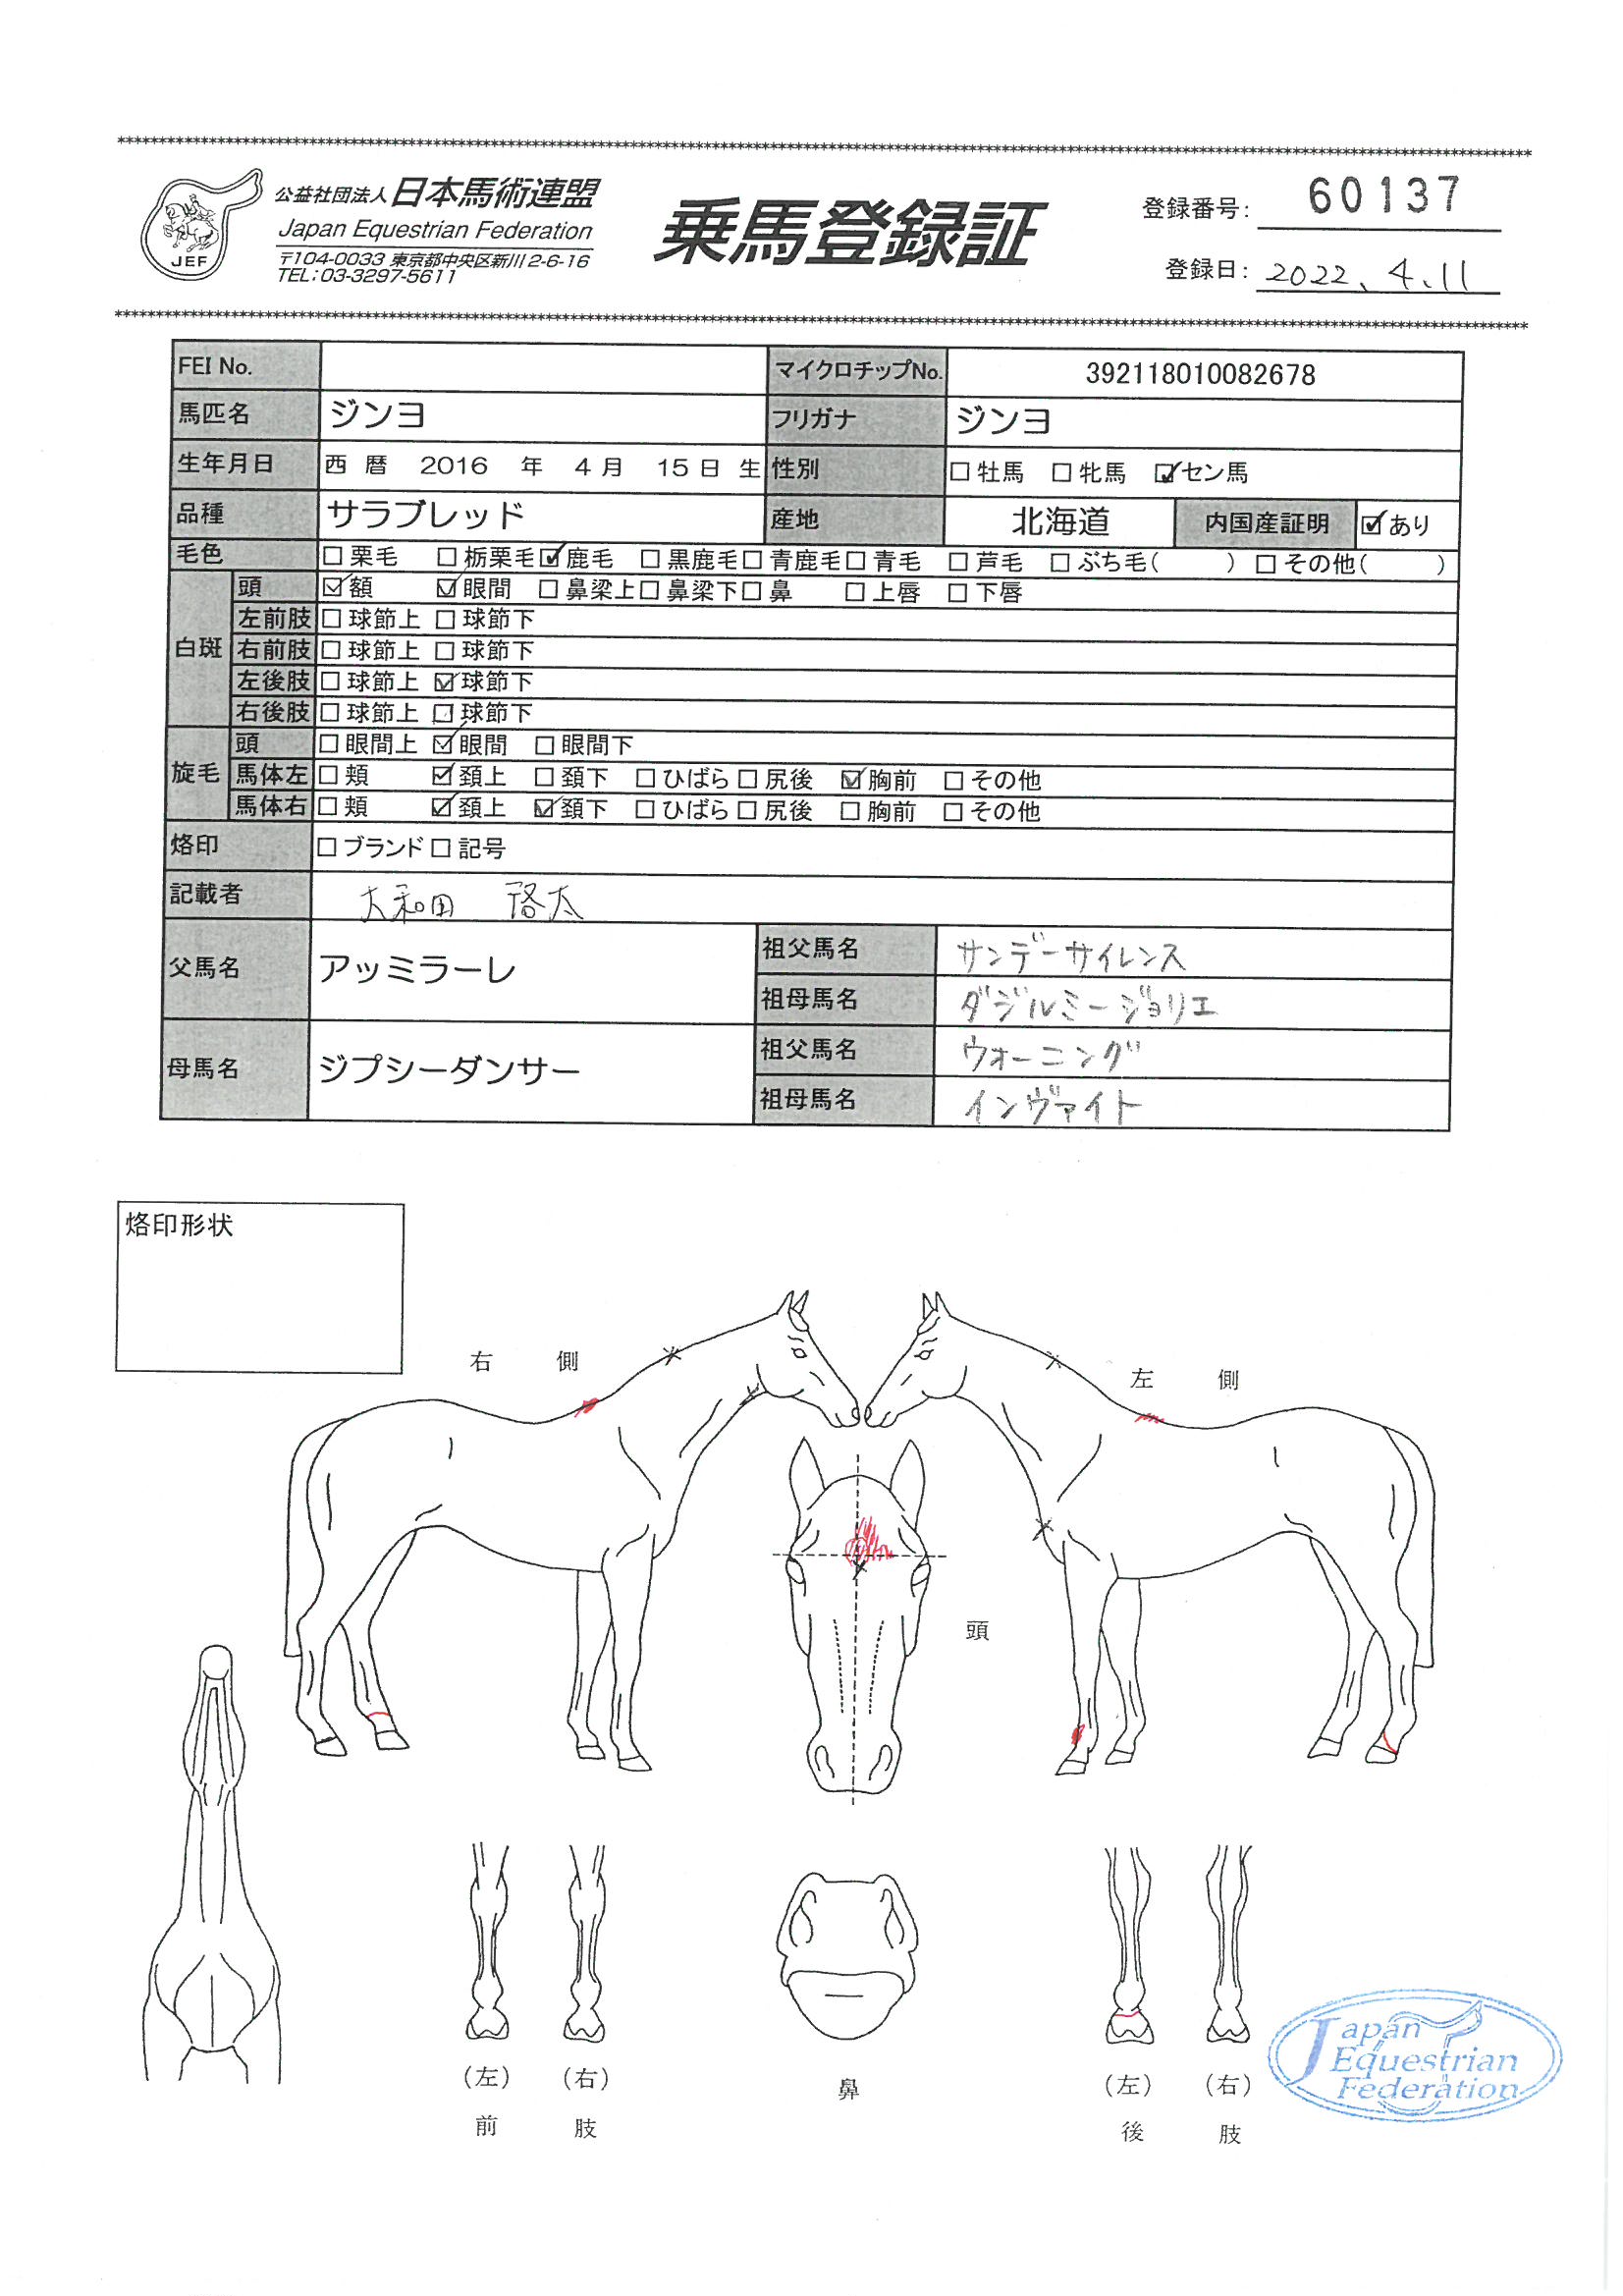 公益社団法人 日本馬術連盟
Japan Equestrian Federation
〒104-0033 東京都中央区新川2-6-16
TEL:03-3297-5611
JEF
乗馬登録証
登録番号: 60137
登録日: 2022、4、11
FEI No. マイクロチップNo. 392118010082678
馬匹名 ジンヨ フリガナ ジンヨ
生年月日 西暦 2016 年 4 月 15 日 生 性別 □牡馬 □牝馬 ☑セン馬
品種 サラブレッド 産地 北海道 内国産証明 ☑あり
毛色 □栗毛 □栃栗毛 ☑鹿毛 □黒鹿毛 □青鹿毛 □青毛 □芦毛 □ぶち毛( ) □その他( )
白斑 頭 ☑額 ☑眼間 □鼻梁上 □鼻梁下 □鼻 □上唇 □下唇
左前肢 □球節上 □球節下
右前肢 □球節上 □球節下
左後肢 □球節上 ☑球節下
右後肢 □球節上 □球節下
旋毛 頭 □眼間上 ☑眼間 □眼間下
馬体左 □頬 ☑頚上 □頚下 □ひばら □尻後 ☑胸前 □その他
馬体右 □頬 ☑頚上 ☑頚下 □ひばら □尻後 □胸前 □その他
烙印 □ブランド □記号
記載者 大和田 啓太
父馬名 アッミラーレ 祖父馬名 サンデーサイレンス
祖母馬名 ダジルミージョリエ
母馬名 ジプシーダンサー 祖父馬名 ウォーニング
祖母馬名 インヴァイト
烙印形状
右 側
左 側
頭
(左) (右)
前 肢
鼻
(左) (右)
後 肢
Japan
Equestrian
Federation